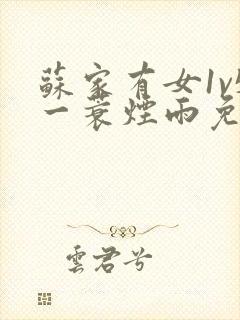 蘇家有女1v
一蓑煙雨免
雲君兮